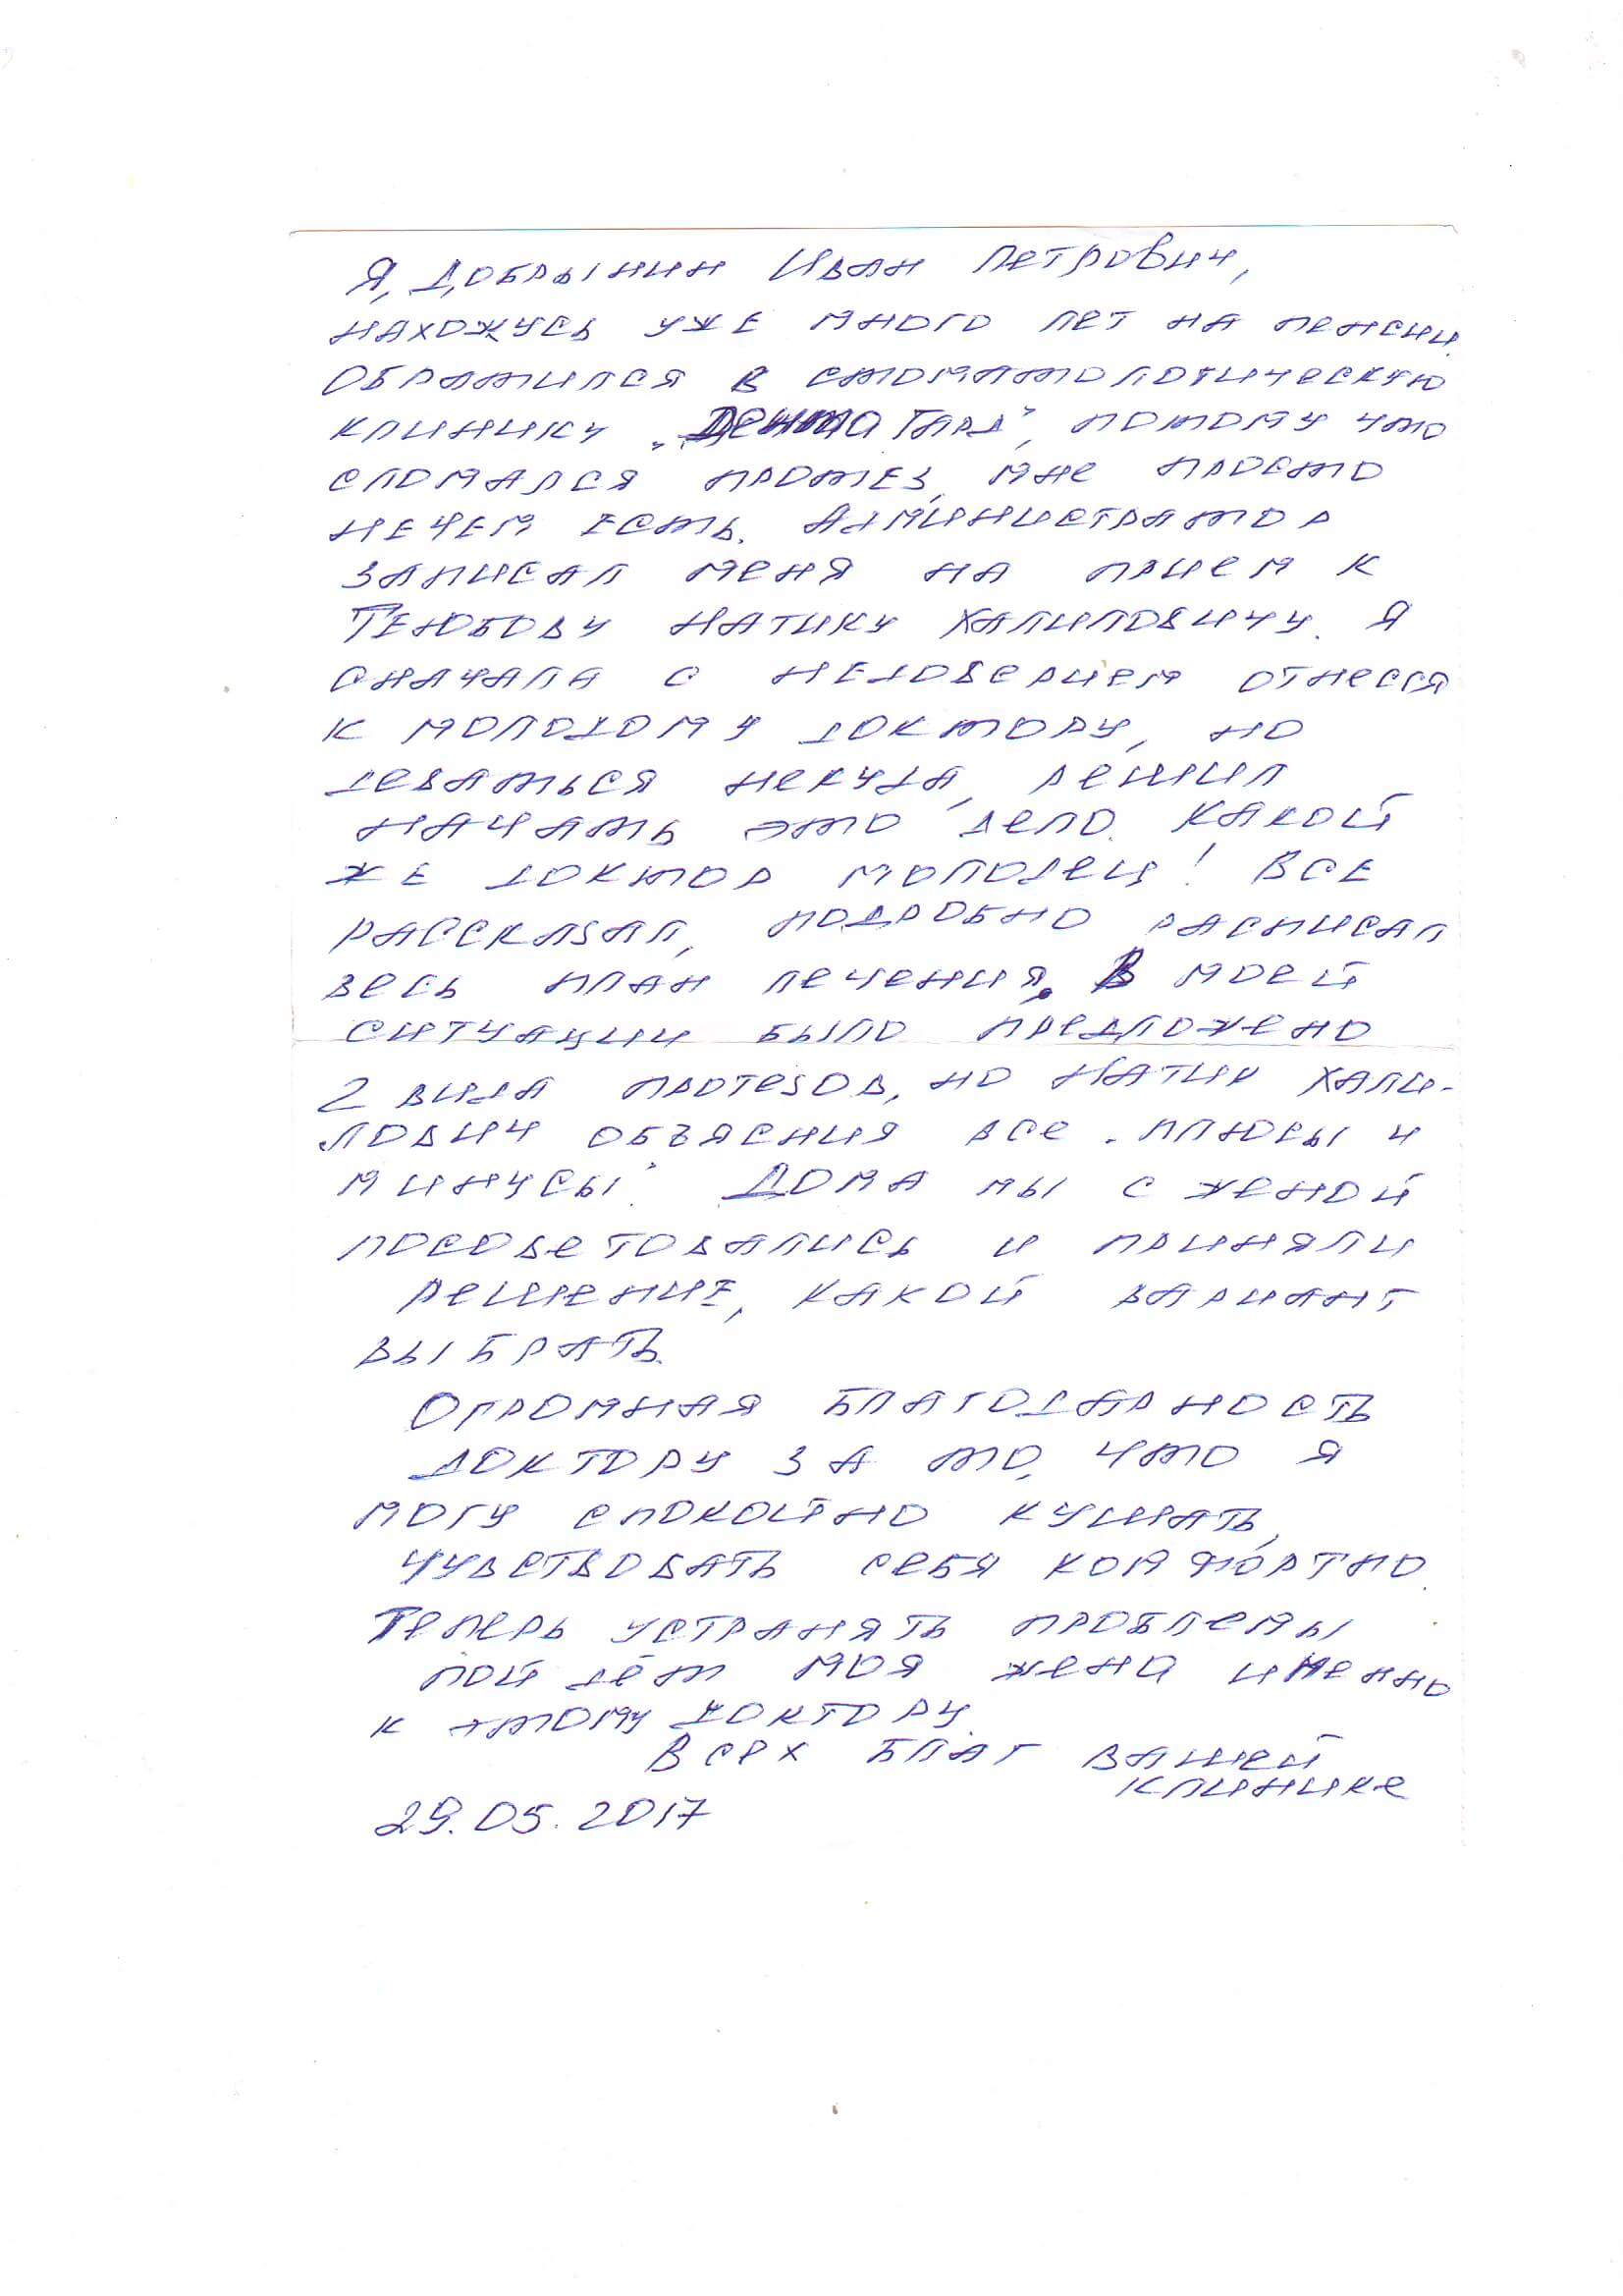 Я, Добрынин Иван Петрович,
нахожусь уже много лет на пенсии.
Обратился в стоматологическую
клинику „Дента Гард", потому что
сломался протез, мне просто
нечем есть. Администратор
записал меня на прием к
Геюбову Натику Халиловичу. Я
сначала с недоверием отнесся
к молодому доктору, но
деваться некуда, решил
начать это дело. Какой
же доктор молодец! Все
рассказал, подробно расписал
весь план лечения. В моей
ситуации было предложено
2 вида протезов, но Натик Хали-
лович объясния все „плюсы и
минусы". Дома мы с женой
посоветовались и приняли
решение, какой вариант
выбрать.
Огромная благодарность
доктору за то, что я
могу спокойно кушать,
чувствовать себя комфортно.
Теперь устранять проблемы
пойдёт моя жена именно
к этому доктору.
Всех благ вашей
клинике
29.05.2017